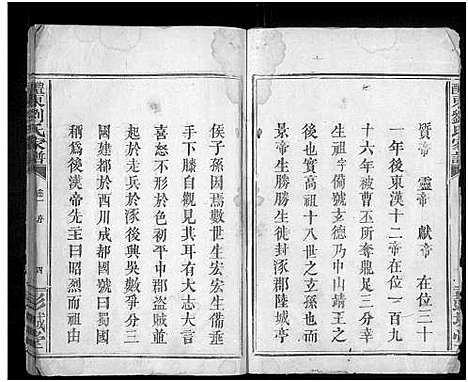 醴東劉氏家譜
質帝 靈帝 獻帝 在位三十
一年後東漢十二帝在位一百九
十六年被曹丕所奪鼎足三分幸
生祖字備號玄德乃中山靖王之
後也又爲高祖十八世之玄孫也而
景帝生勝勝生貞封涿郡陸城亭
侯子孫因焉數世生宏宏生備垂
手下膝自觀見其耳有大志大言
喜怒不形於色初平中郡黃賊並
起於走兵於後與吳數爭分三
國建都於西川成都國號曰蜀國
稱爲後漢帝先主曰昭烈而祖由
醴東劉氏家譜
卷一
四
彭城堂